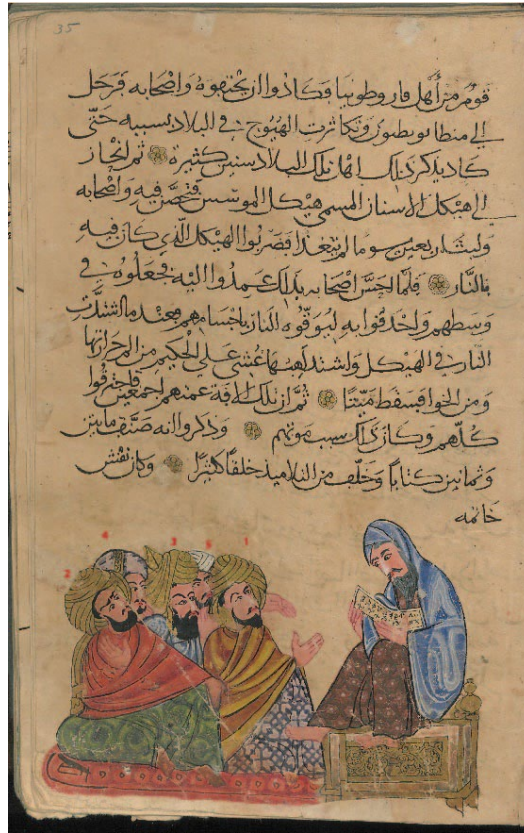 35
قوم من أهل قاروطونيا فكادوا ان يخنقوه واصحابه فرحل
الى منطابونطيون وتكاثرت الهيوج في البلاد بسببه حتى
كاد يذكر ذلك اهل تلك البلاد سنين كثيرة ثم انحاز
الى هيكل الاسنان المسمى هيكل الموسس فتحصن فيه واصحابه
ولبث اربعين يوما لم يتغذا فضربوا الهيكل الذي كان فيه
بالنار فلما احس اصحابه بذلك عمدوا اليه فجعلوه في
وسطهم واحدقوا به ليوقوه النار باجسامهم فعند ما اشتدت
النار في الهيكل واشتد لهبها غشي على الحكيم من الم حرارتها
ومن الخوا فسقط ميتا ثم ان تلك الافة عمتهم اجمعين فاحترقوا
كلهم وكان ذلك سبب موتهم وذكروا انه صنف مايتين
وثمانين كتابا وخلف من التلاميذ خلقا كثيرا وكان نقش
خاتمه
4
3 5 1
2